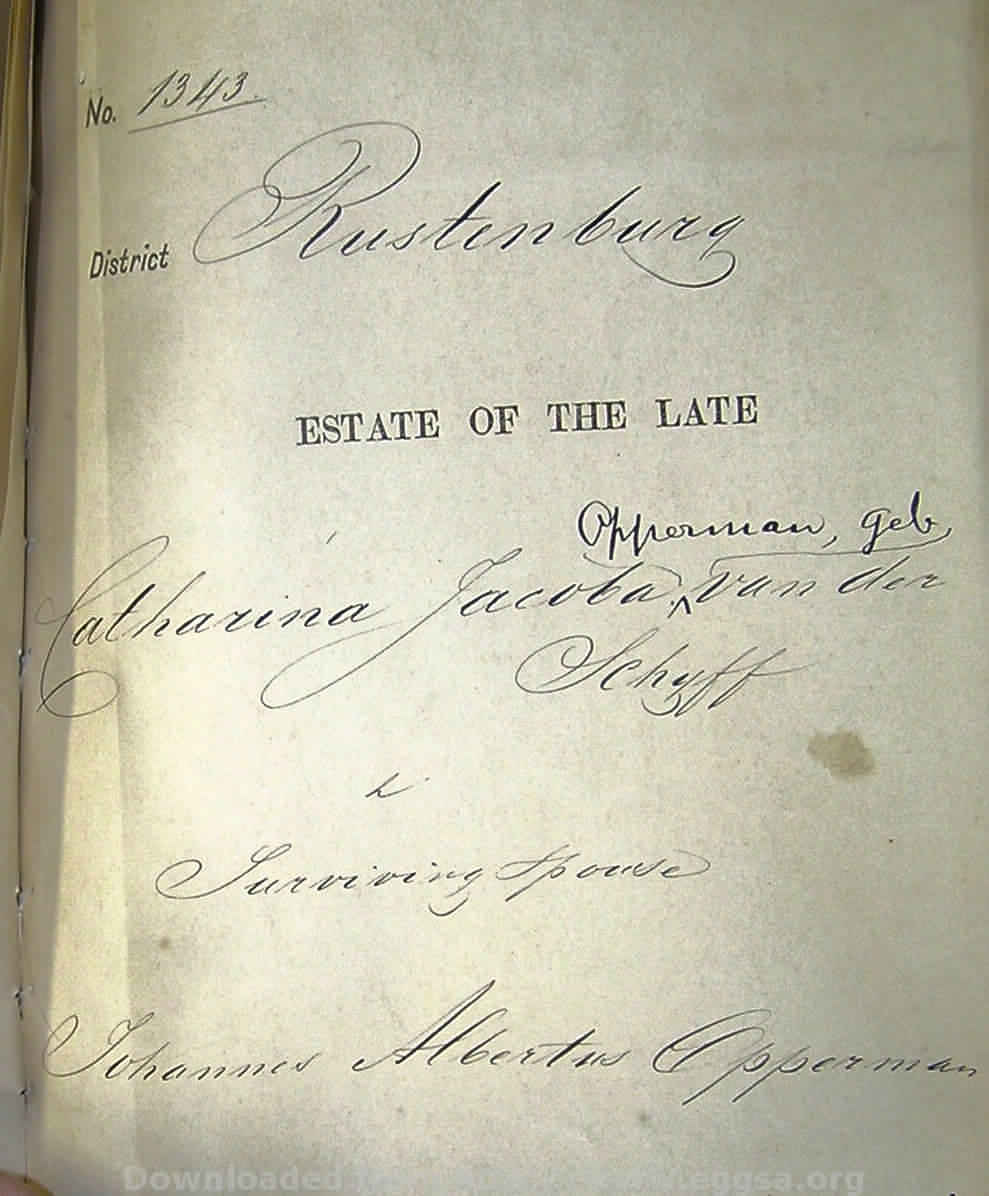 No. 1343.
District Rustenburg
ESTATE OF THE LATE
Opperman, geb.
Catharina Jacoba ‸ van der
Schyff
&
Surviving Spouse
Johannes Albertus Opperman
Downloaded eggsa.org